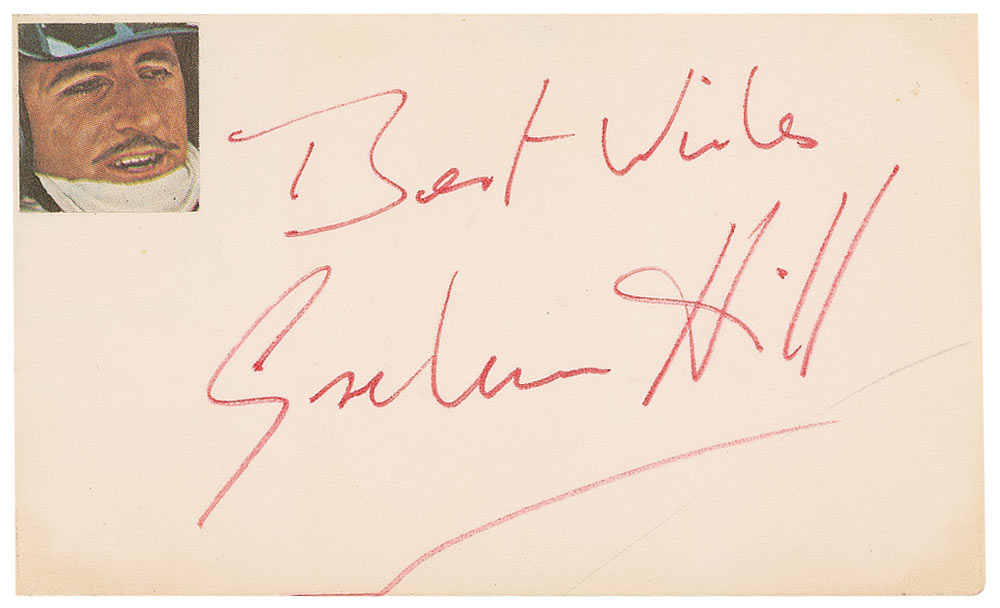 Best Wishes
Graham Hill